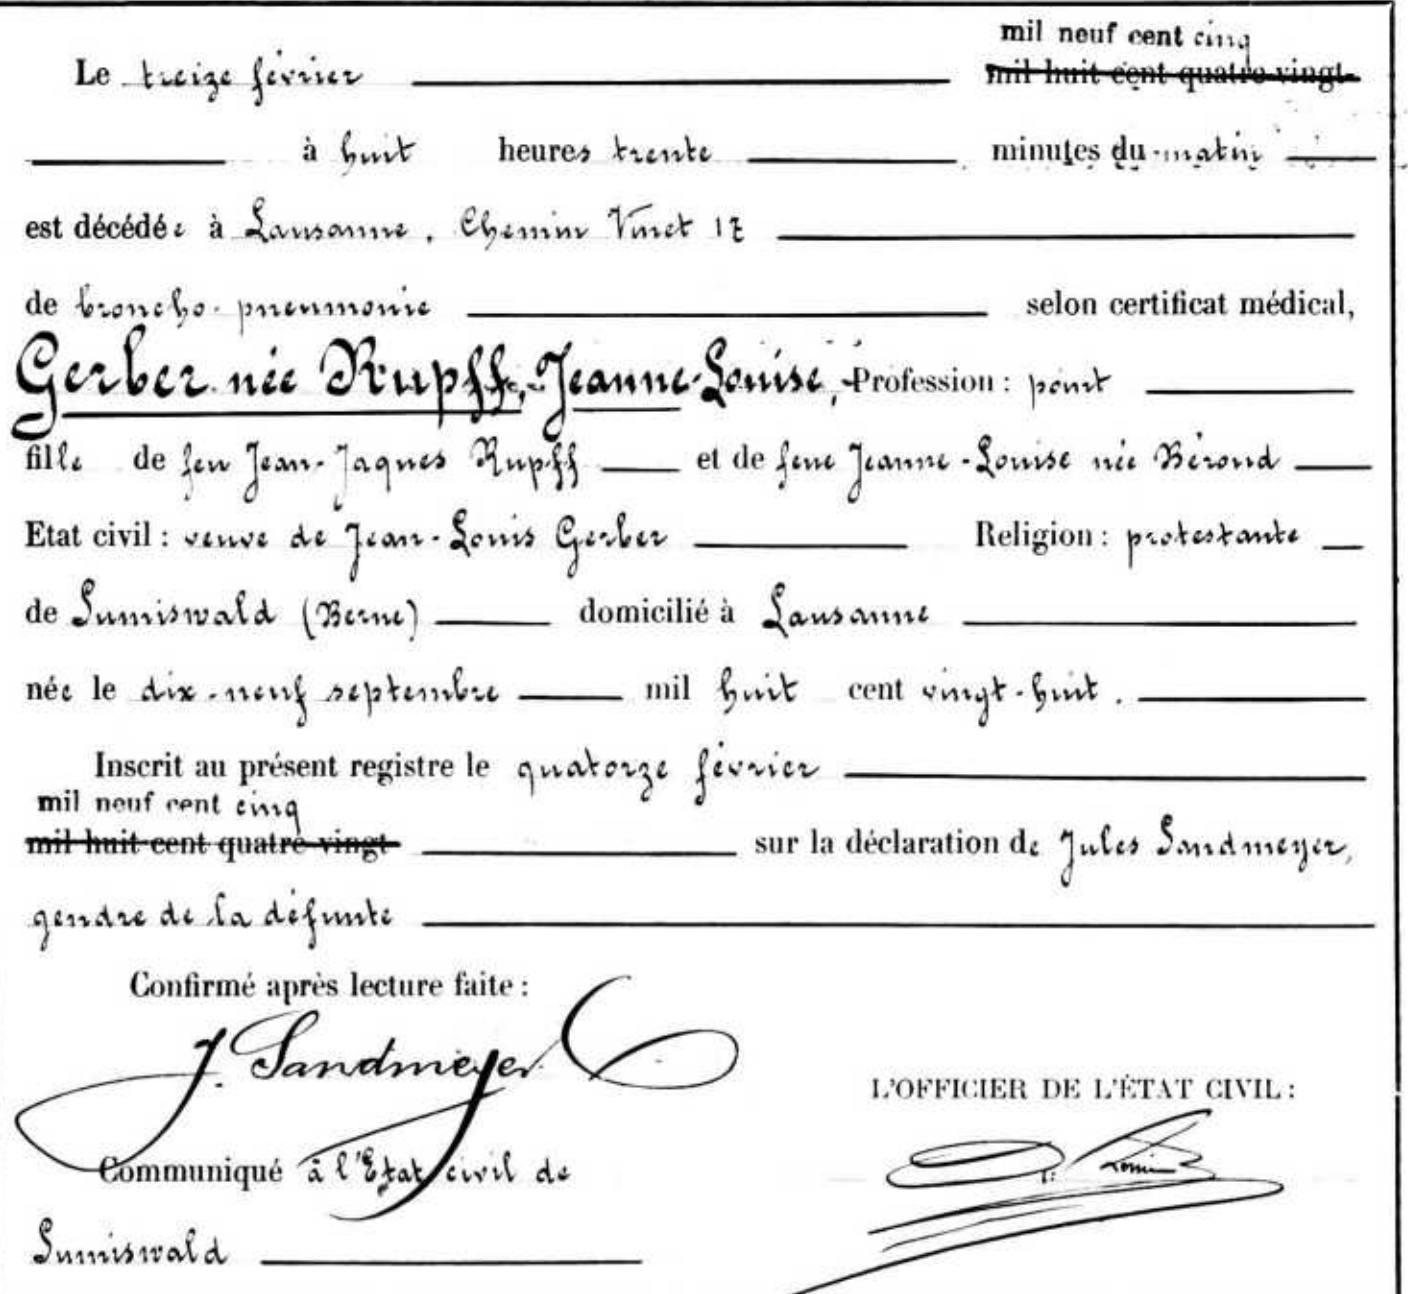 mil neuf cent cinq
Le treize février mil huit cent quatre-vingt-
à huit heures trente minutes du matin
est décédée à Lausanne, Chemin Vinet 17
de broncho-pneumonie selon certificat médical,
Gerber née Rupff, Jeanne-Louise, Profession : point
fille de feu Jean-Jaques Rupff et de feue Jeanne-Louise née Bérond
Etat civil : veuve de Jean-Louis Gerber Religion : protestante
de Sumiswald (Berne) domicilié à Lausanne
née le dix-neuf septembre mil huit cent vingt-huit.
Inscrit au présent registre le quatorze février
mil neuf cent cinq
mil huit cent quatre-vingt- sur la déclaration de Jules Sandmeyer,
gendre de la défunte
Confirmé après lecture faite :
J. Sandmeyer
L'OFFICIER DE L'ÉTAT CIVIL :
Communiqué à l'Etat civil de
Sumiswald